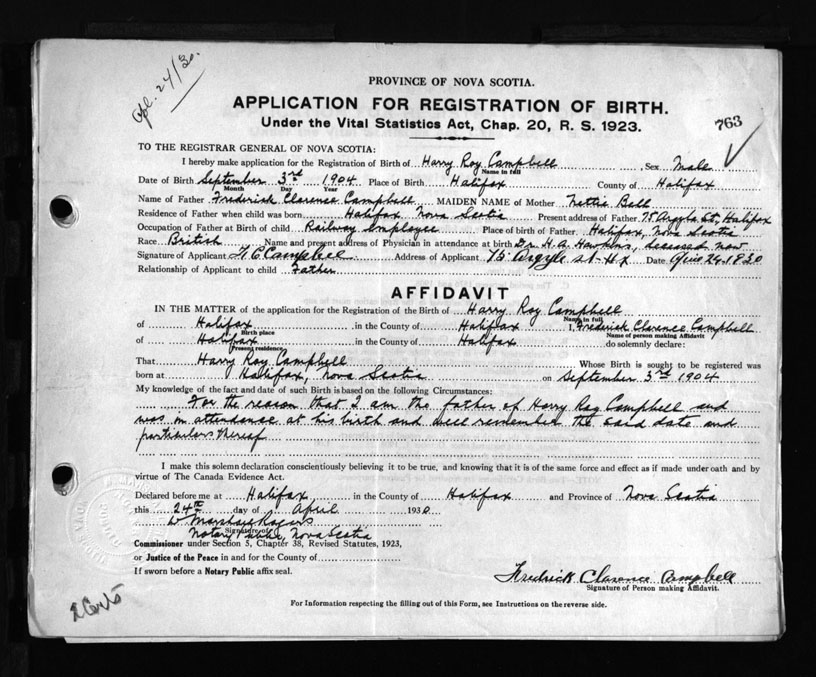 Apl. 24/30.
PROVINCE OF NOVA SCOTIA.
APPLICATION FOR REGISTRATION OF BIRTH.
Under the Vital Statistics Act, Chap. 20, R. S. 1923.
763
TO THE REGISTRAR GENERAL OF NOVA SCOTIA:
I hereby make application for the Registration of Birth of Harry Roy Campbell, Sex Male
Name in full
Date of Birth September 3rd 1904 Place of Birth Halifax County of Halifax
Month Day Year
Name of Father Frederick Clarence Campbell MAIDEN NAME of Mother Nettie Ball
Residence of Father when child was born Halifax Nova Scotia Present address of Father 75 Argyle St, Halifax
Occupation of Father at Birth of child Railway Employee Place of birth of Father Halifax, Nova Scotia
Race British Name and present address of Physician in attendance at birth Dr. H.A. Hawkins, deceased now
Signature of Applicant F. C. Campbell Address of Applicant 75 Argyle St Hx Date 24 1930
Relationship of Applicant to child Father
AFFIDAVIT
IN THE MATTER of the application for the Registration of the Birth of Harry Roy Campbell
Name in full
of Halifax, in the County of Halifax I, Frederick Clarence Campbell
Birth place Name of person making Affidavit
of Halifax in the County of Halifax do solemnly declare:
Present residency
That Harry Roy Campbell Whose Birth is sought to be registered was
born at Halifax, Nova Scotia on September 3rd 1904
My knowledge of the fact and date of such Birth is based on the following Circumstances:
For the reason that I am the father of Harry Roy Campbell and
was in attendance at his birth and well remember the said date and
particulars thereof
I make this solemn declaration conscientiously believing it to be true, and knowing that it is of the same force and effect as if made under oath and by
virtue of The Canada Evidence Act.
Declared before me at Halifax, in the County of Halifax and Province of Nova Scotia
this 24th day of April 1930
W Marshall Rogers
Signature of
Notary Public, Nova Scotia
Commissioner under Section 5, Chapter 38, Revised Statutes, 1923,
or Justice of the Peace in and for the County of
If sworn before a Notary Public affix seal.
Fredrick Clarence Campbell
Signature of Person making Affidavit.
2 Certs
For Information respecting the filling out of this Form, see Instructions on the reverse side.